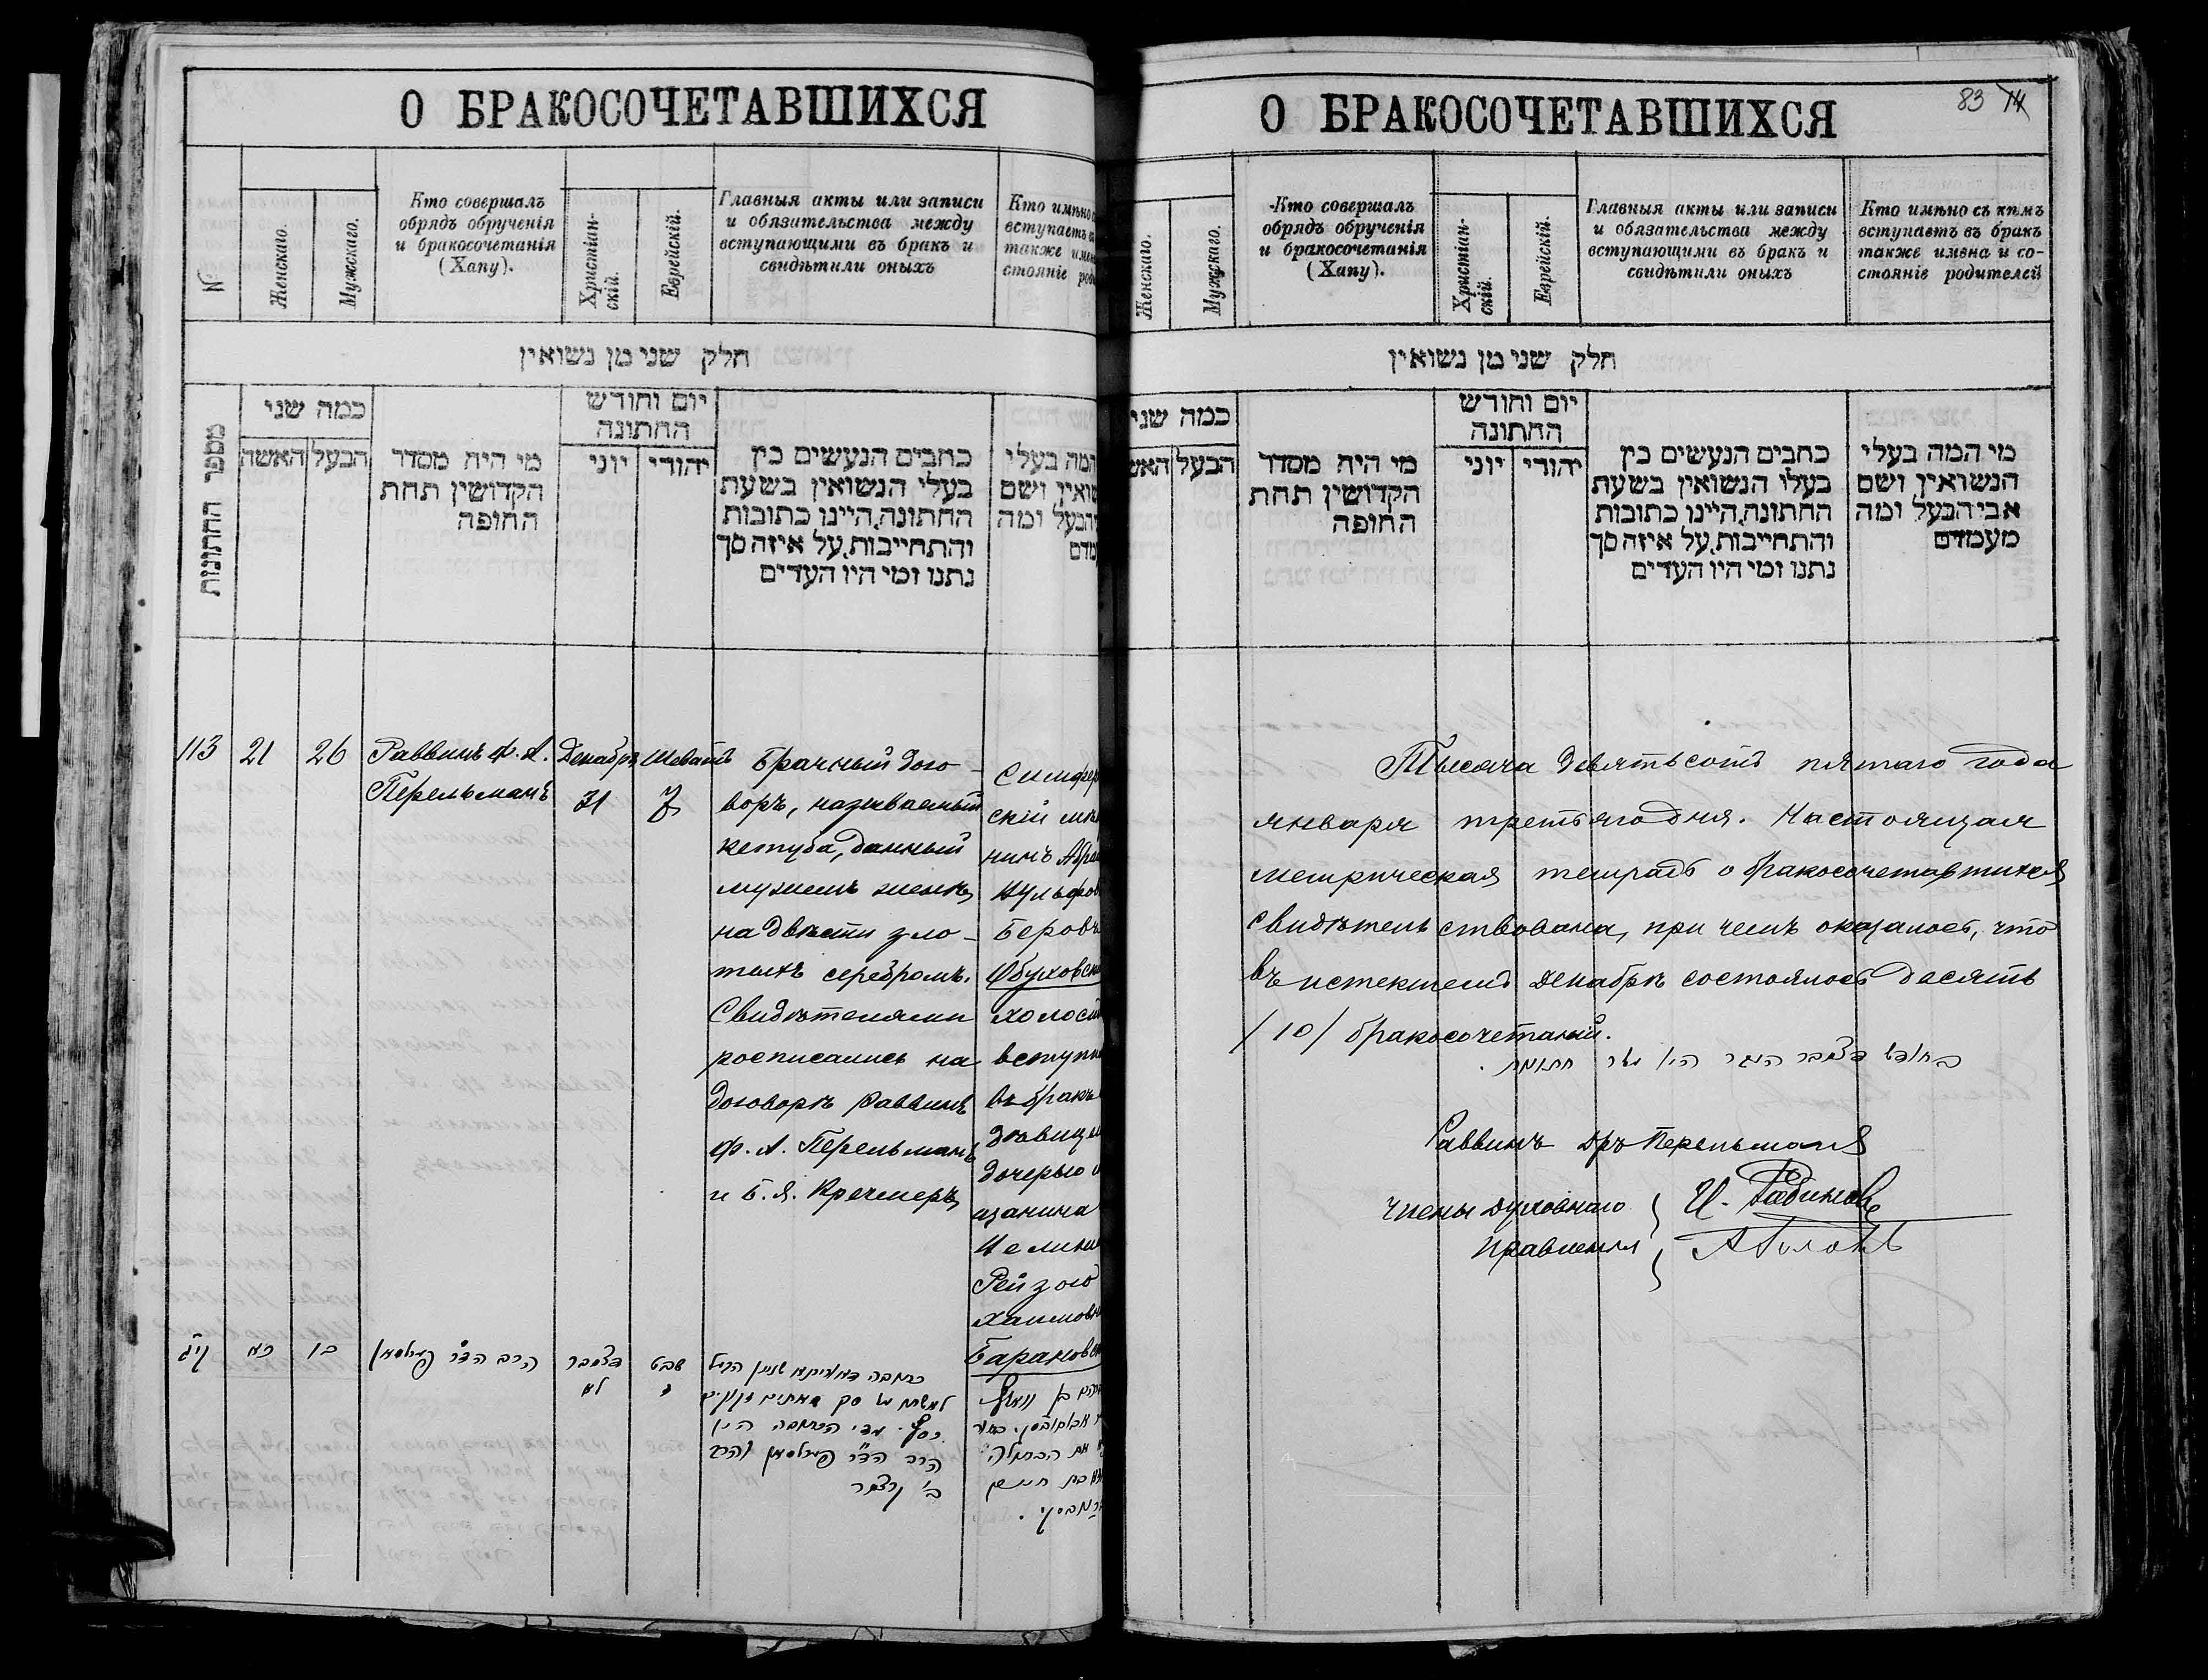 О БРАКОСОЧЕТАВШИХСЯ
№
Женскаго.
Мужскаго.
Кто совершалъ
обрядъ обрученія
и бракосочетанія
(Хапу).
Христіан-
скій.
Еврейскій.
Главныя акты или записи
и обязательства между
вступающими въ бракъ и
свидѣтили оныхъ
Кто имѣно
вступаетъ
также
стояніе
חלק שני מן נשואין
מספר החתונות
כמה שני
האשה
הבעל
מי היה מסדר
הקדושין תחת
החופה
יום וחודש
החתונה
יוני
יהודי
כתבים הנעשים בין
בעלי הנשואין בשעת
החתונה, היינו כתובות
והתחייבות, על איזה סך
נתנו ומי היו העדים
המה בעלי
ושם
הבעל ומה
113
21
26
Раввинъ Ф. А.
Перельманъ
Декабрь
31
Шеватъ
7
Брачный дого-
воръ, называемый
кетуба, данный
мужемъ женѣ,
на двѣсти зло-
тыхъ серебромъ.
Свидѣтелями
росписались на
договорѣ Раввинъ
Ф. А. Перельманъ
и Б. Я. Кречмеръ
Симфер
скій мѣ
нинъ Абра
Вульфов
Беровъ
Обуховск
холост
вступи
въ бракъ
дѣвицей
дочерью
щанина
Рейзою
Хаимовн
Барановс
קיג
כא
כו
הרב הד״ר פערלמאן
דצמבר
לא
שבט
הרב הד״ר פערלמאן
О БРАКОСОЧЕТАВШИХСЯ
83 74
Женскаго.
Мужскаго.
Кто совершалъ
обрядъ обрученія
и бракосочетанія
(Хапу).
Христіан-
скій.
Еврейскій.
Главныя акты или записи
и обязательства между
вступающими въ бракъ и
свидѣтили оныхъ
Кто имѣно съ кѣмъ
вступаетъ въ бракъ
также имѣна и со-
стояніе родителей
חלק שני מן נשואין
כמה שני
הבעל
מי היה מסדר
הקדושין תחת
החופה
יום וחודש
החתונה
יוני
יהודי
כתבים הנעשים בין
בעלי הנשואין בשעת
החתונה, היינו כתובות
והתחייבות, על איזה סך
נתנו ומי היו העדים
מי המה בעלי
הנשואין ושם
אבי הבעל ומה
מעמדם
Тысяча девятьсотъ пятаго года
января третьяго дня. Настоящая
метрическая тетрадь о бракосочетавшихся
свидѣтельствована, при чемъ оказалось, что
въ истекшемъ Декабрѣ состоялось десять
/10/ бракосочетаній.
בחודש דצמבר העבר היו עשר חתונות.
Раввинъ Дръ Перельманъ
Члены духовнаго
правленія
И. Рабиновъ